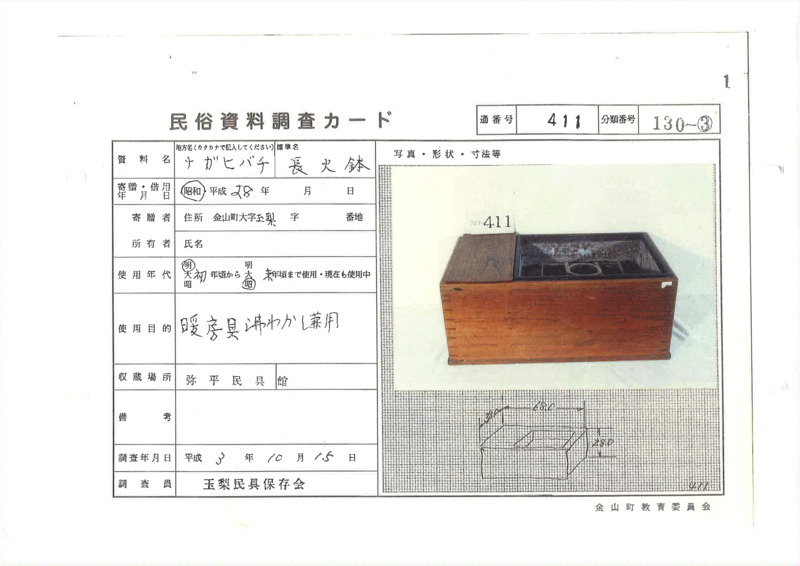 1
民俗資料調査カード
通番号 411 分類番号 130~③
資料名 地方名(カタカナで記入してください) ナガヒバチ 標準名 長火鉢
寄贈・借用年月日 昭和・平成 28年 月 日
寄贈者 住所 金山町大字玉梨 字 番地
所有者 氏名
使用年代 明大昭 初年頃から 明大昭 末年頃まで使用・現在も使用中
使用目的 暖房具 沸わかし兼用
収蔵場所 弥平民具館
備考
調査年月日 平成 3年 10月 15日
調査員 玉梨民具保存会
写真・形状・寸法等
NO.411
38.0 68.0
28.0
411
金山町教育委員会